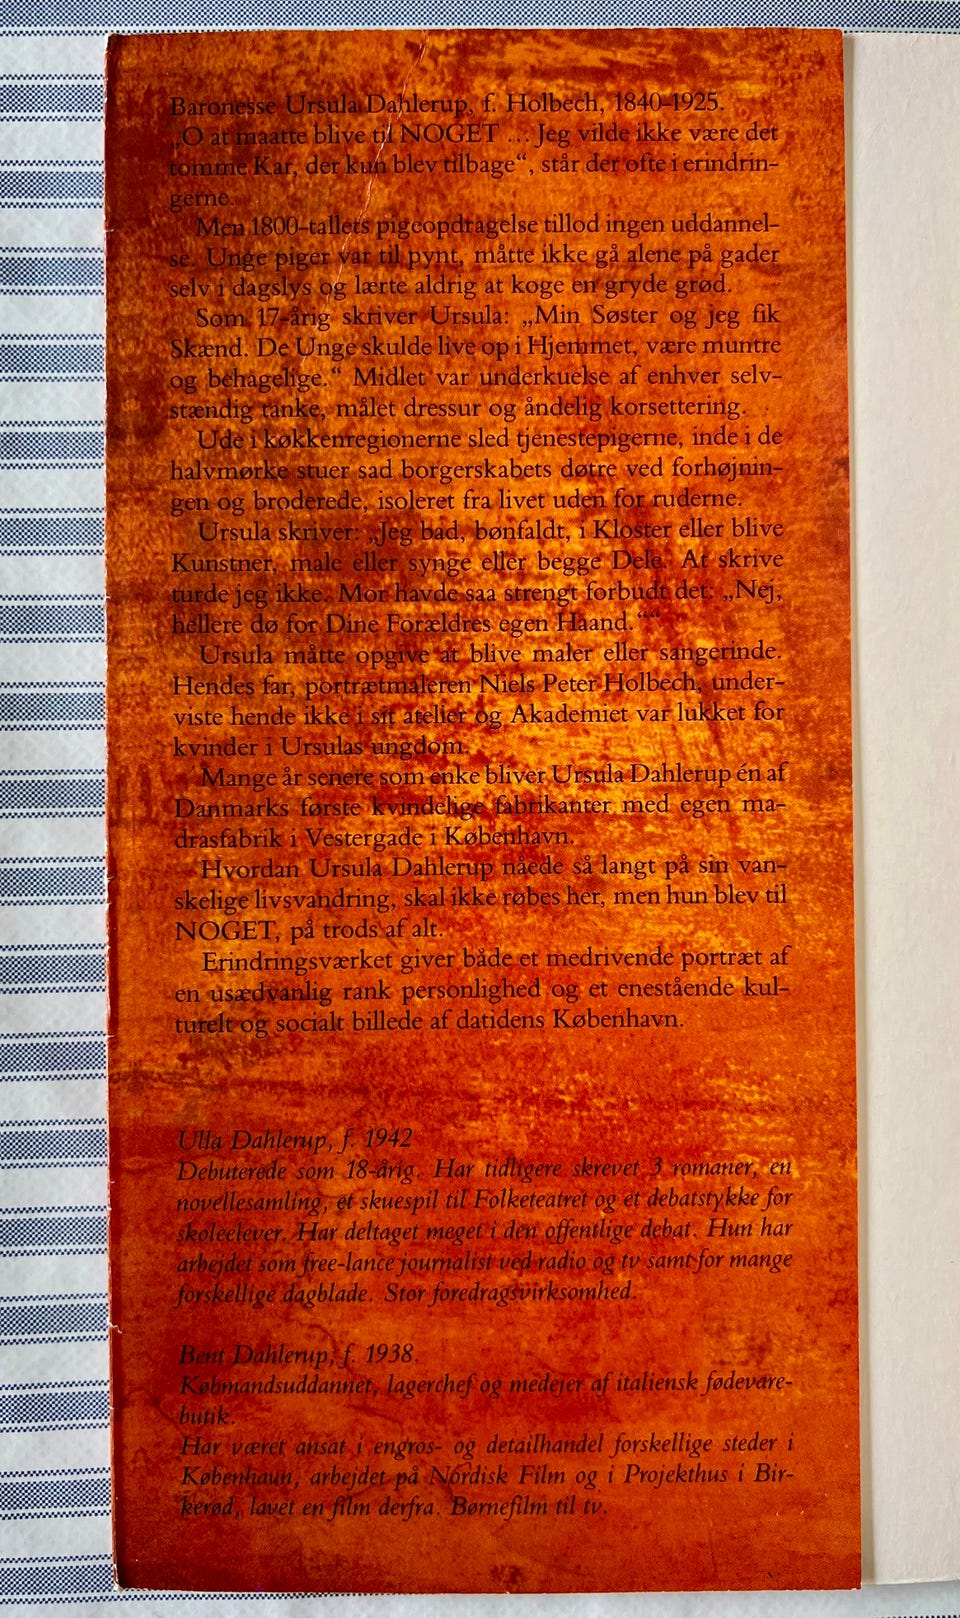 Baronesse Ursula Dahlerup, f. Holbech, 1840-1925.
„O at maatte blive til NOGET ... Jeg vilde ikke være det
tomme Kar, der kun blev tilbage“, står der ofte i erindrin-
gerne.
Men 1800-tallets pigeopdragelse tillod ingen uddannel-
se. Unge piger var til pynt, måtte ikke gå alene på gader
selv i dagslys og lærte aldrig at koge en gryde grød.
Som 17-årig skriver Ursula: „Min Søster og jeg fik
Skænd. De Unge skulde live op i Hjemmet, være muntre
og behagelige.“ Midlet var underkuelse af enhver selv-
stændig tanke, målet dressur og åndelig korsettering.
Ude i køkkenregionerne sled tjenestepigerne, inde i de
halvmørke stuer sad borgerskabets døtre ved forhøjnin-
gen og broderede, isoleret fra livet uden for ruderne.
Ursula skriver: „Jeg bad, bønfaldt, i Kloster eller blive
Kunstner, male eller synge eller begge Dele. At skrive
turde jeg ikke. Mor havde saa strengt forbudt det: „Nej,
hellere dø for Dine Forældres egen Haand.““
Ursula måtte opgive at blive maler eller sangerinde.
Hendes far, portrætmaleren Niels Peter Holbech, under-
viste hende ikke i sit atelier og Akademiet var lukket for
kvinder i Ursulas ungdom.
Mange år senere som enke bliver Ursula Dahlerup én af
Danmarks første kvindelige fabrikanter med egen ma-
drasfabrik i Vestergade i København.
Hvordan Ursula Dahlerup nåede så langt på sin van-
skelige livsvandring, skal ikke røbes her, men hun blev til
NOGET, på trods af alt.
Erindringsværket giver både et medrivende portræt af
en usædvanlig rank personlighed og et enestående kul-
turelt og socialt billede af datidens København.
Ulla Dahlerup, f. 1942
Debuterede som 18-årig. Har tidligere skrevet 3 romaner, en
novellesamling, et skuespil til Folketeatret og et debatstykke for
skoleelever. Har deltaget meget i den offentlige debat. Hun har
arbejdet som free-lance journalist ved radio og tv samt for mange
forskellige dagblade. Stor foredragsvirksomhed.
Bent Dahlerup, f. 1938.
Købmandsuddannet, lagerchef og medejer af italiensk fødevare-
butik.
Har været ansat i engros- og detailhandel forskellige steder i
København, arbejdet på Nordisk Film og i Projekthus i Bir-
kerød, lavet en film derfra. Børnefilm til tv.